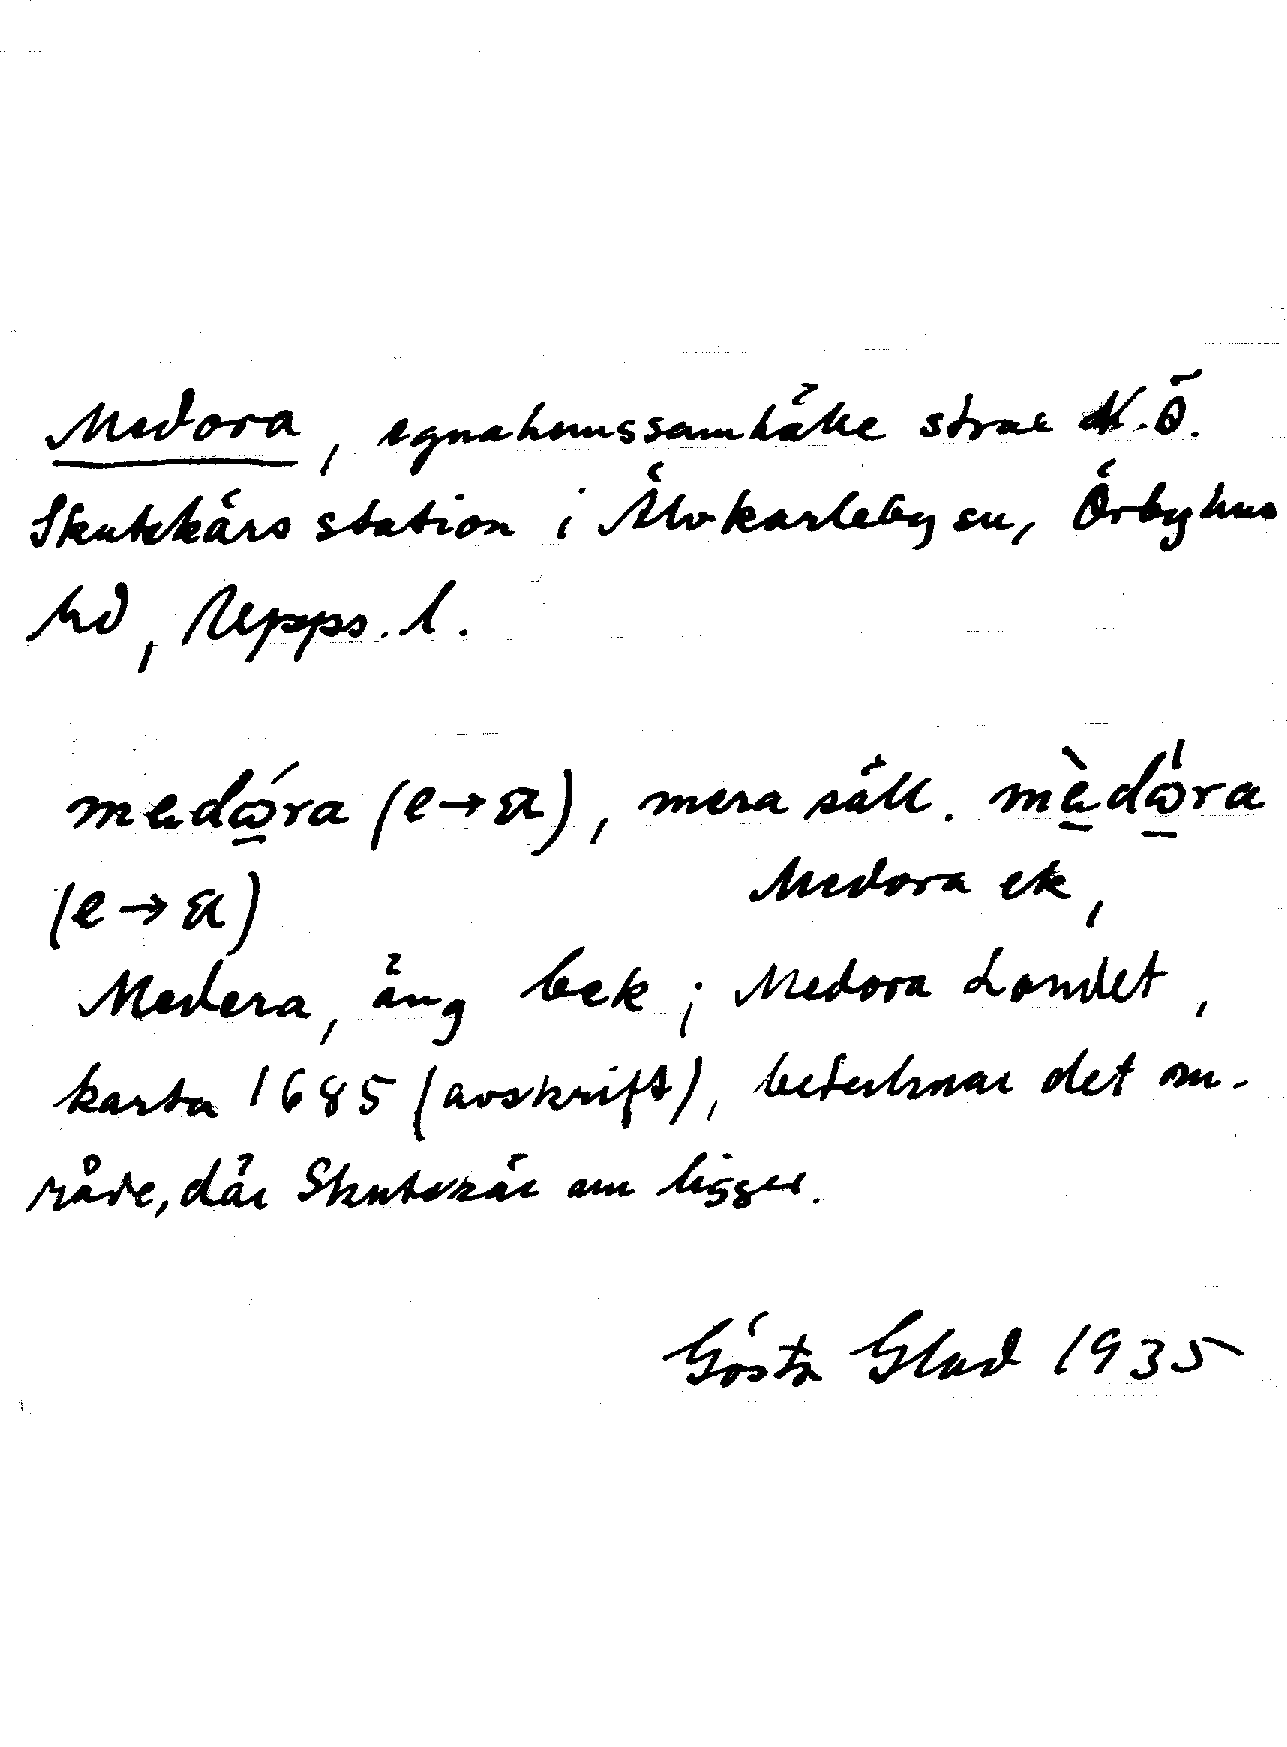 Medora, egnahemssamhälle strax N.Ö.
Skutskärs station i Älvkarleby sn, Örbyhus
hd, Upps. l.
medóra (e→a), mera säll. mèdòra
(e→a)
Medora ek,
Medera, äng bek; Medora Landet,
karta 1685 (avskrift), betecknar det om-
råde, där Skutskär nu ligger.
Gösta Glad 1935